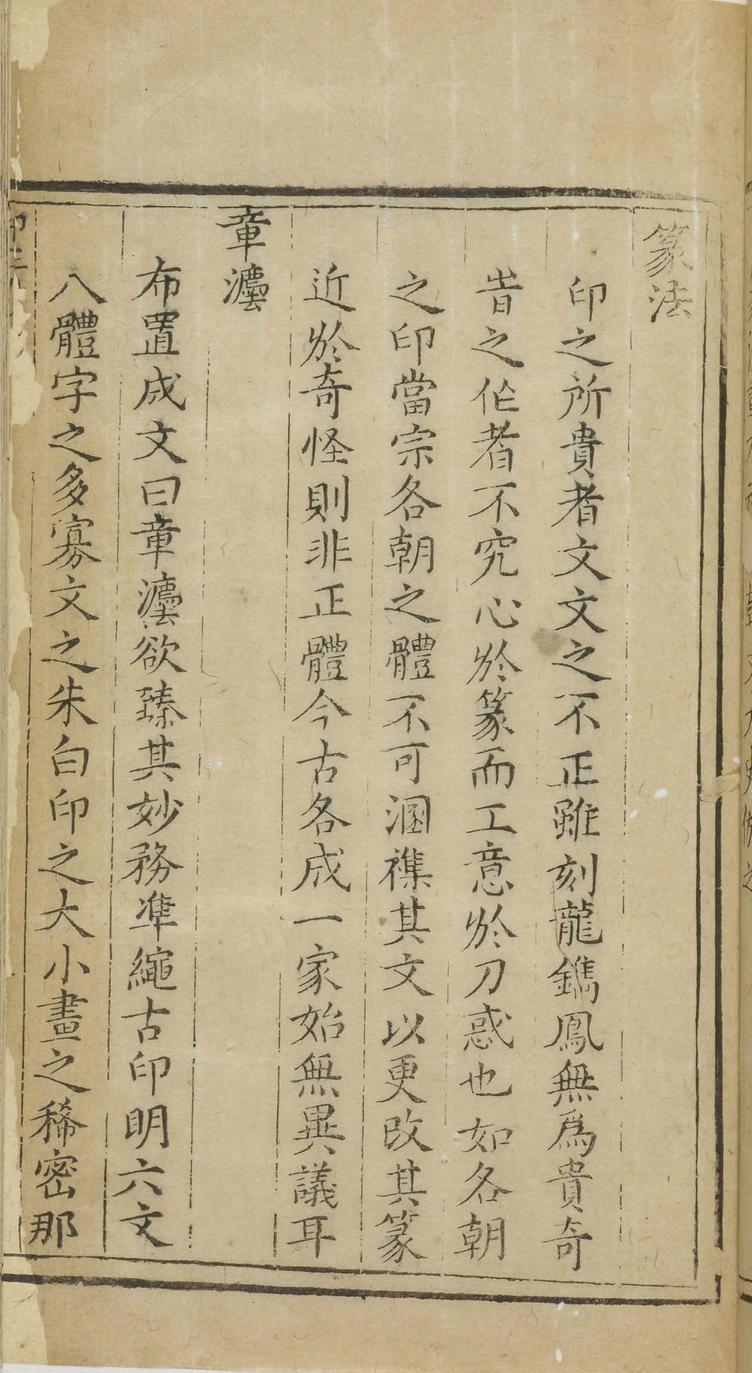 篆法
印之所貴者文文之不正雖刻龍鐫鳳無爲貴奇
昔之作者不究心於篆而工意於刀惑也如各朝
之印當宗各朝之體不可溷襍其文以更改其篆
近於奇怪則非正體今古各成一家始無異議耳
章灋
布置成文曰章灋欲臻其妙務準繩古印明六文
八體字之多寡文之朱白印之大小畫之稀密那